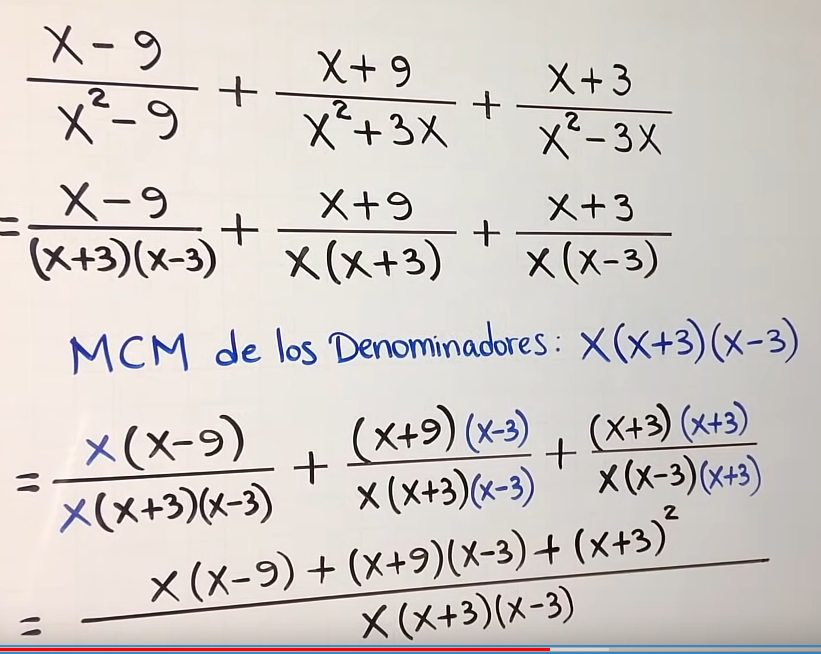 x - 9 / x² - 9 + x + 9 / x² + 3x + x + 3 / x² - 3x
= x - 9 / (x+3)(x-3) + x + 9 / x(x+3) + x + 3 / x(x-3)
MCM de los Denominadores: x(x+3)(x-3)
= x(x-9) / x(x+3)(x-3) + (x+9)(x-3) / x(x+3)(x-3) + (x+3)(x+3) / x(x-3)(x+3)
= x(x-9) + (x+9)(x-3) + (x+3)² / x(x+3)(x-3)